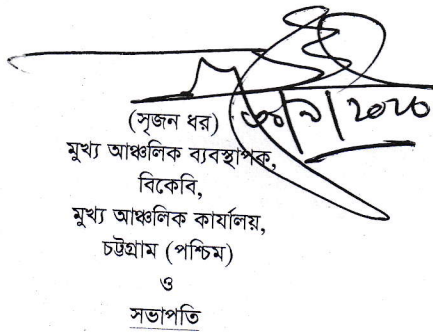 (সৃজন ধর)
মুখ্য আঞ্চলিক ব্যবস্থাপক,
বিকেবি,
মুখ্য আঞ্চলিক কার্যালয়,
চট্টগ্রাম (পশ্চিম)
ও
সভাপতি